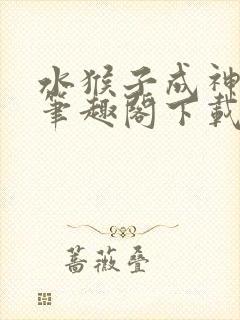 水猴子成神
笔趣阁下载
蔷薇叠